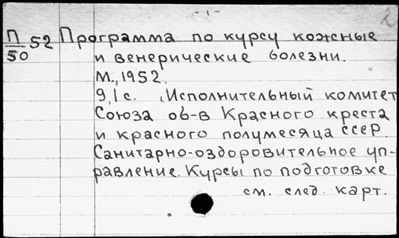 - 1 -
П/50 52 Программа по курсу кожные
и венерические болезни.
М., 1952.
9,1с. (Исполнительный комитет
Союза об-в Красного креста
и красного полумесяца СССР.
Санитарно-оздоровительное уп-
равление. Курсы по подготовке
см. след. карт.